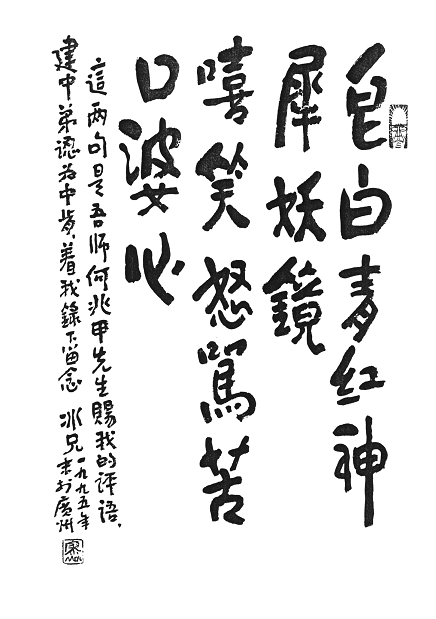 皂白青红神
犀妖鏡
嘻笑怒駡苦
口婆心
這两句是吾师何兆甲先生賜我的评语，
建中弟認为中肯，着我錄下留念 冰兄一九九五年
末於廣州